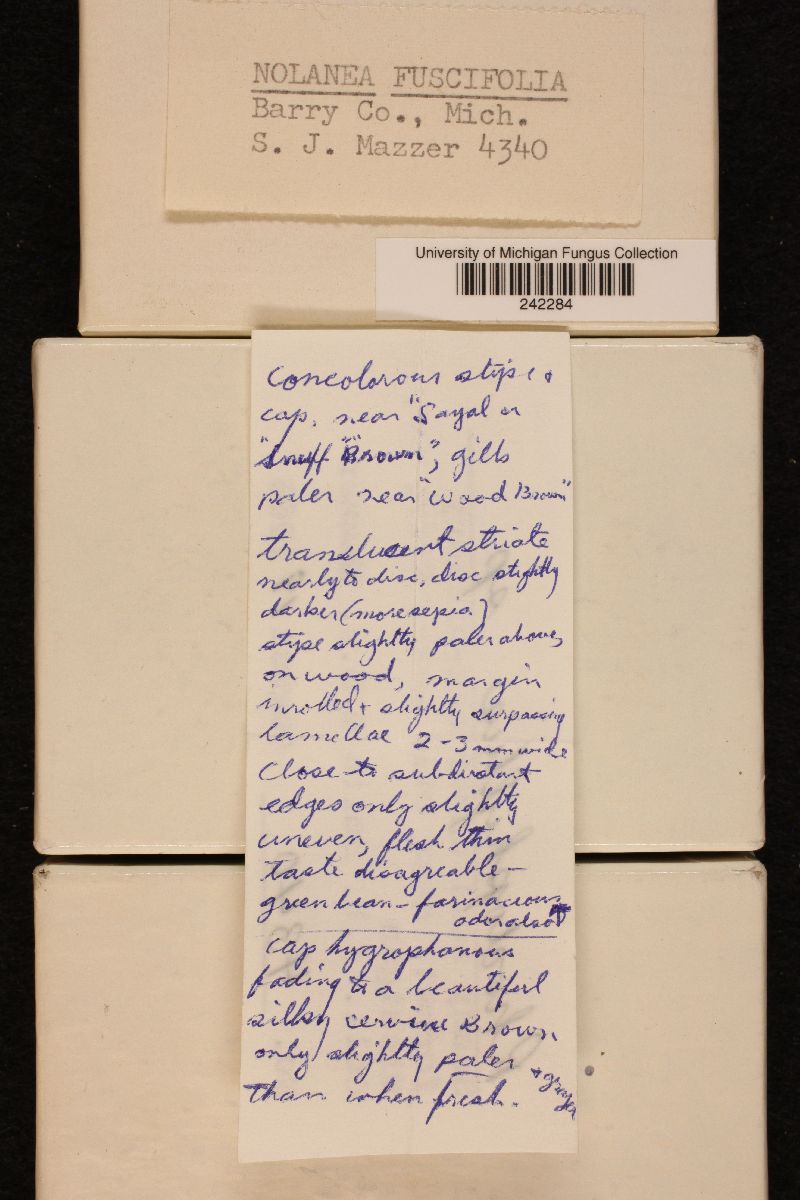 NOLANEA FUSCIFOLIA
Barry Co., Mich.
S. J. Mazzer 4340
University of Michigan Fungus Collection
242284
Concolorous stipe +
cap, near "Sayal or
"Snuff "Brown", gills
paler near "Wood Brown"
translucent striate
nearly to disc, disc slightly
darker (more sepia)
stipe slightly paler above,
on wood, margin
inrolled + slightly surpassing
lamellae 2-3 mm wide
Close to subdistant
edges only slightly
uneven, flesh thin
taste disagreable -
green bean - farinaceous
odor also
cap hygrophanous
fading to a beautiful
silky cervine Brown
only slightly paler + grayer
than when fresh.